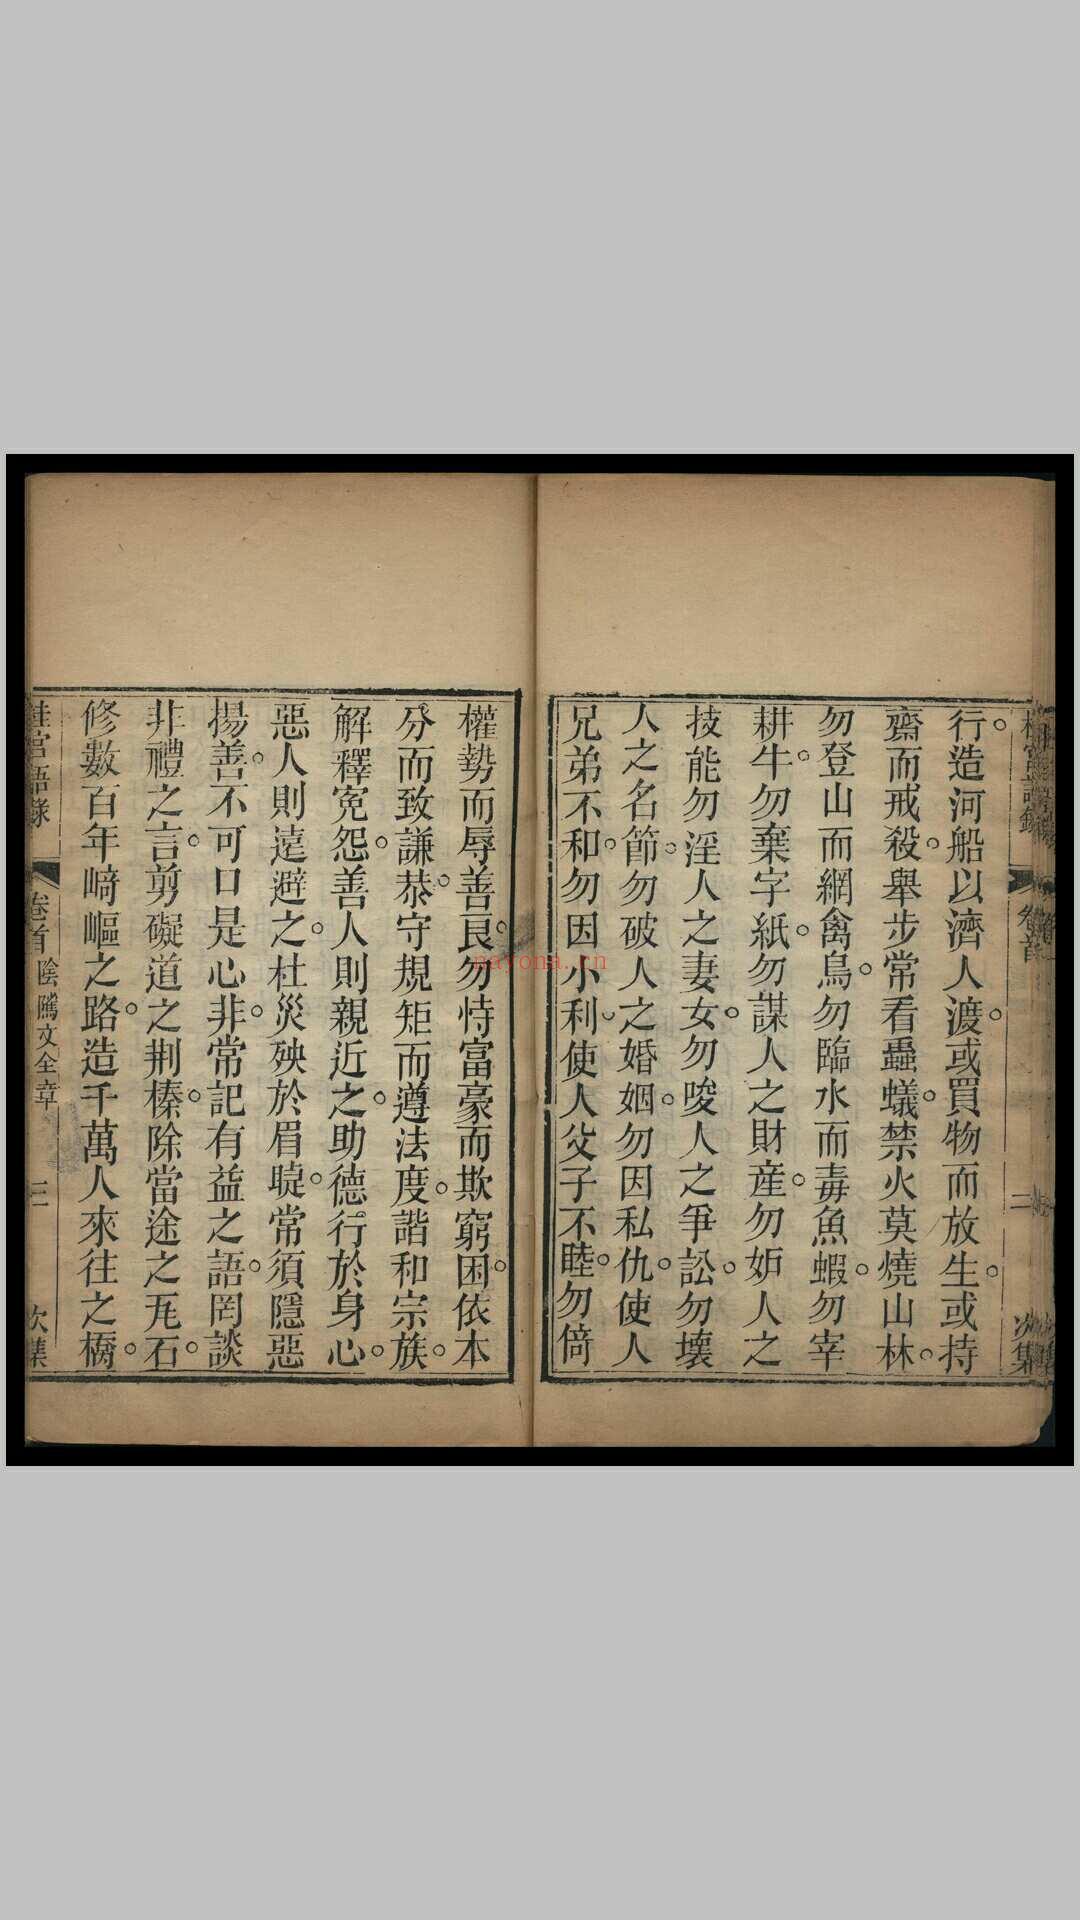 行造河船以濟人渡或買物而放生或持
齋而戒殺舉步常看蟲蟻禁火莫燒山林
勿登山而網禽鳥勿臨水而毒魚蝦勿宰
耕牛勿棄字紙勿謀人之財産勿妬人之
技能勿淫人之妻女勿唆人之爭訟勿壞
人之名節勿破人之婚姻勿因私仇使人
兄弟不和勿因小利使人父子不睦勿倚
權勢而辱善良勿恃富豪而欺窮困依本
分而致謙恭守規矩而遵法度諧和宗族
解釋寃怨善人則親近之助德行於身心
惡人則遠避之杜災殃於眉睫常須隱惡
揚善不可口是心非常記有益之語罔談
非禮之言剪礙道之荆榛除當途之瓦石
修數百年崎嶇之路造千萬人來往之橋
桂宮語錄 卷首 陰隲文全章 三 欠集
nayona.cn